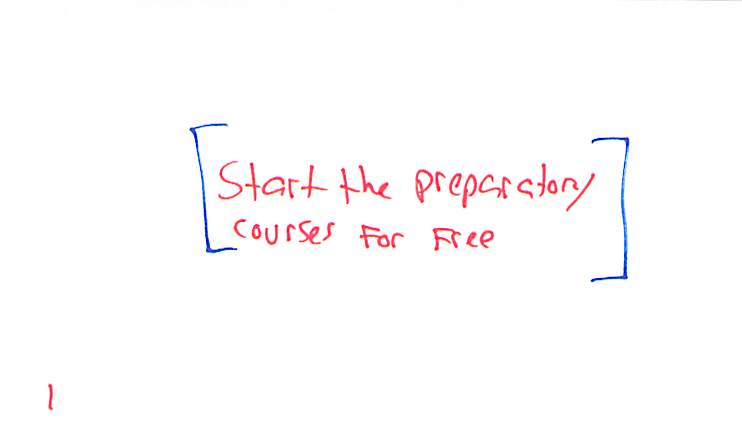 Start the preparatory
courses For Free
1